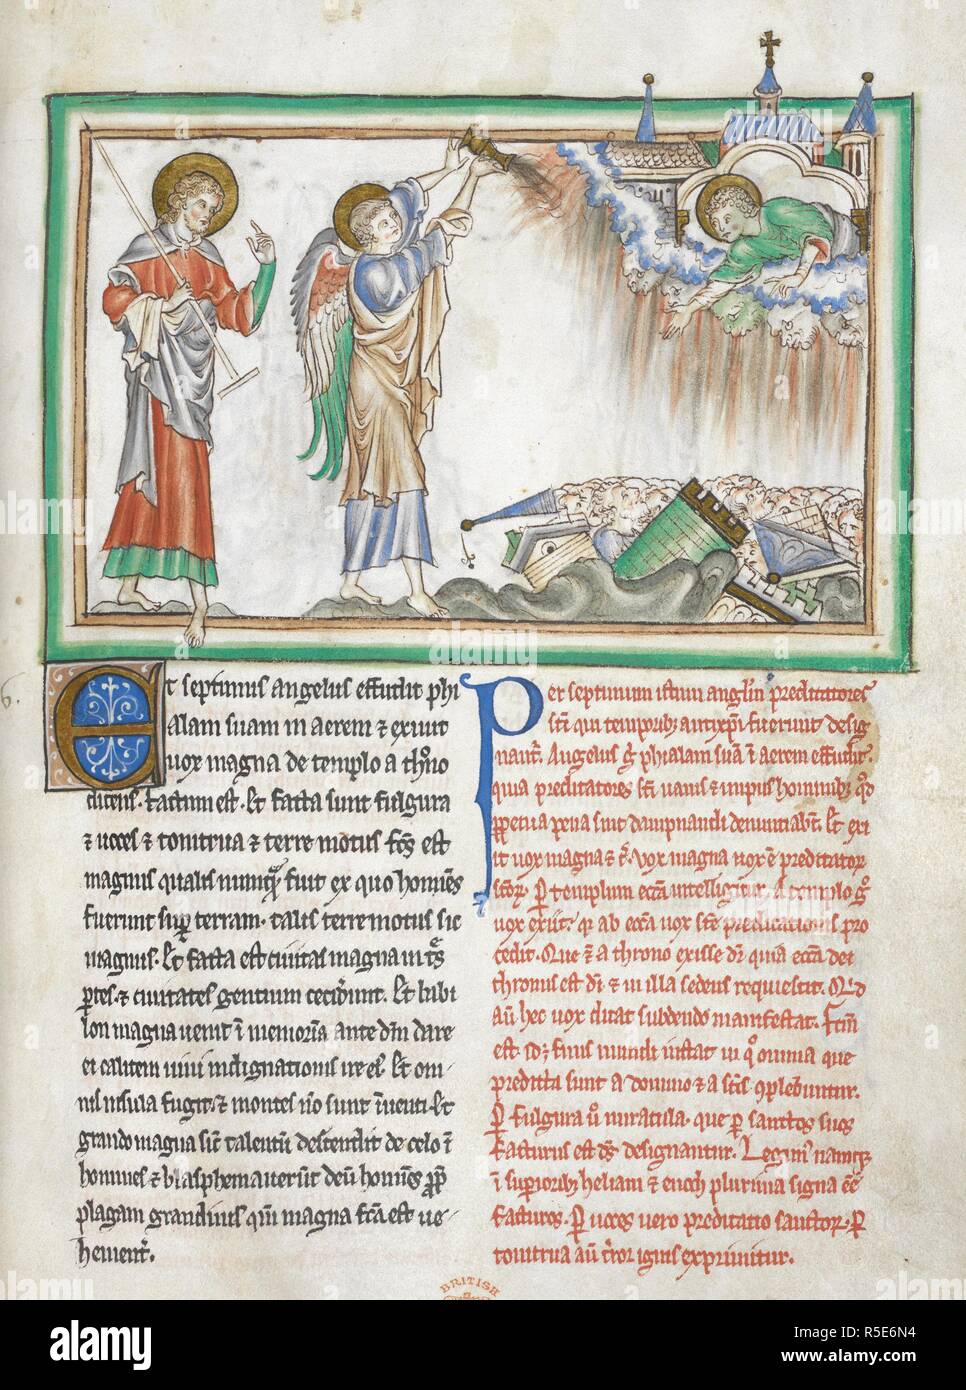 6.
Et septimus angelus effudit phi
alam suam in aerem & exivit
vox magna de templo a th'no
dicens. factum est. Et facta sunt fulgura
& voces & tonitrua & terre motus fc's est
magnus qualis nunq' fuit ex quo homi'es
fuerunt sup' terram. talis terre motus sic
magnus. Et facta est civitas magna in t's
p'tes. & civitates gentium cecid'unt. Et babi
lon magna venit i' memoria' ante d'm dare
ei calicem vini indignationis ire ei'. Et om-
nis insula fugit. & montes n'o sunt i'venti. Et
grando magna sic' talentu' descendit de celo i'
homines & blasphemaverunt deu' homi'es p'p'
plagam grandinis q'm magna f'ca est ve-
hement'.
Per septimum istum angl'm predicatores
s'ci qui temporib' antix'pi fuerunt desig
nant'. Angelus g' phialam sua' i' aerem effudit.
quia predicatores s'ci vanis & impiis hominib' q'd
p'petua pena sint dampnandi denuntiab't. Et exi
it vox magna & c'. vox magna vox e' predicator'
s'cor'. P' templum ecc'a intelligitur. A templo g'
vox exiit. q' ab ecc'a vox s'ce predicationis pro
cedit. Que & a throno exisse d'r quia ecc'a dei
thronus est d'i & in illa sedens requiescit. Q'd
au' hec vox dicat subdendo manifestat. F'cm
est. id; finis mundi instat in q' omnia que
predicta sunt a domino & a s'cis (com)plebuntur.
P' fulgura v' miracula. que p' sanctos suos
facturus est d's designantur. Legim' namq;
i' superiorib' heliam & enoch plurima signa e'e
facturos. P' voces vero predicatio sanctor'. P'
tonitrua au' t'ror ignis exprimitur.
BRITISH
alamy
Image ID: R5E6N4
www.alamy.com